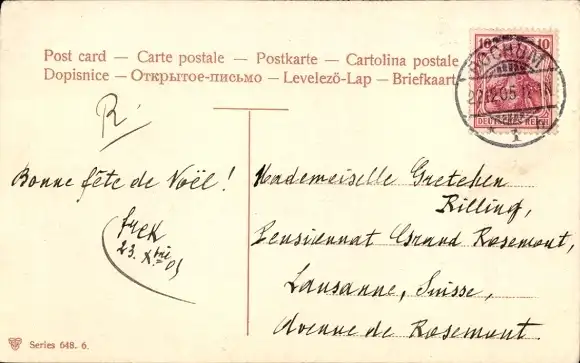 Post card — Carte postale — Postkarte — Cartolina postale
Dopisnice — Открытое-письмо — Levelező-Lap — Briefkaart
10 10
BOCHUM
12.05
DEUTSCHES REICH
R.
Bonne fête de Noël!
23. Xbri 05
Mademoiselle Gretchen
Rilling,
Pensionnat Grand Rosemont,
Lausanne, Suisse,
Avenue de Rosemont.
Series 648. 6.